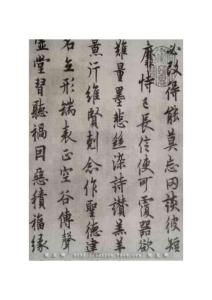 必改得能莫忘罔談彼短
靡恃己長信使可覆器欲
難量墨悲絲染詩讚羔羊
景行維賢剋念作聖德建
名立形端表正空谷傳聲
虛堂習聽禍因惡積福緣